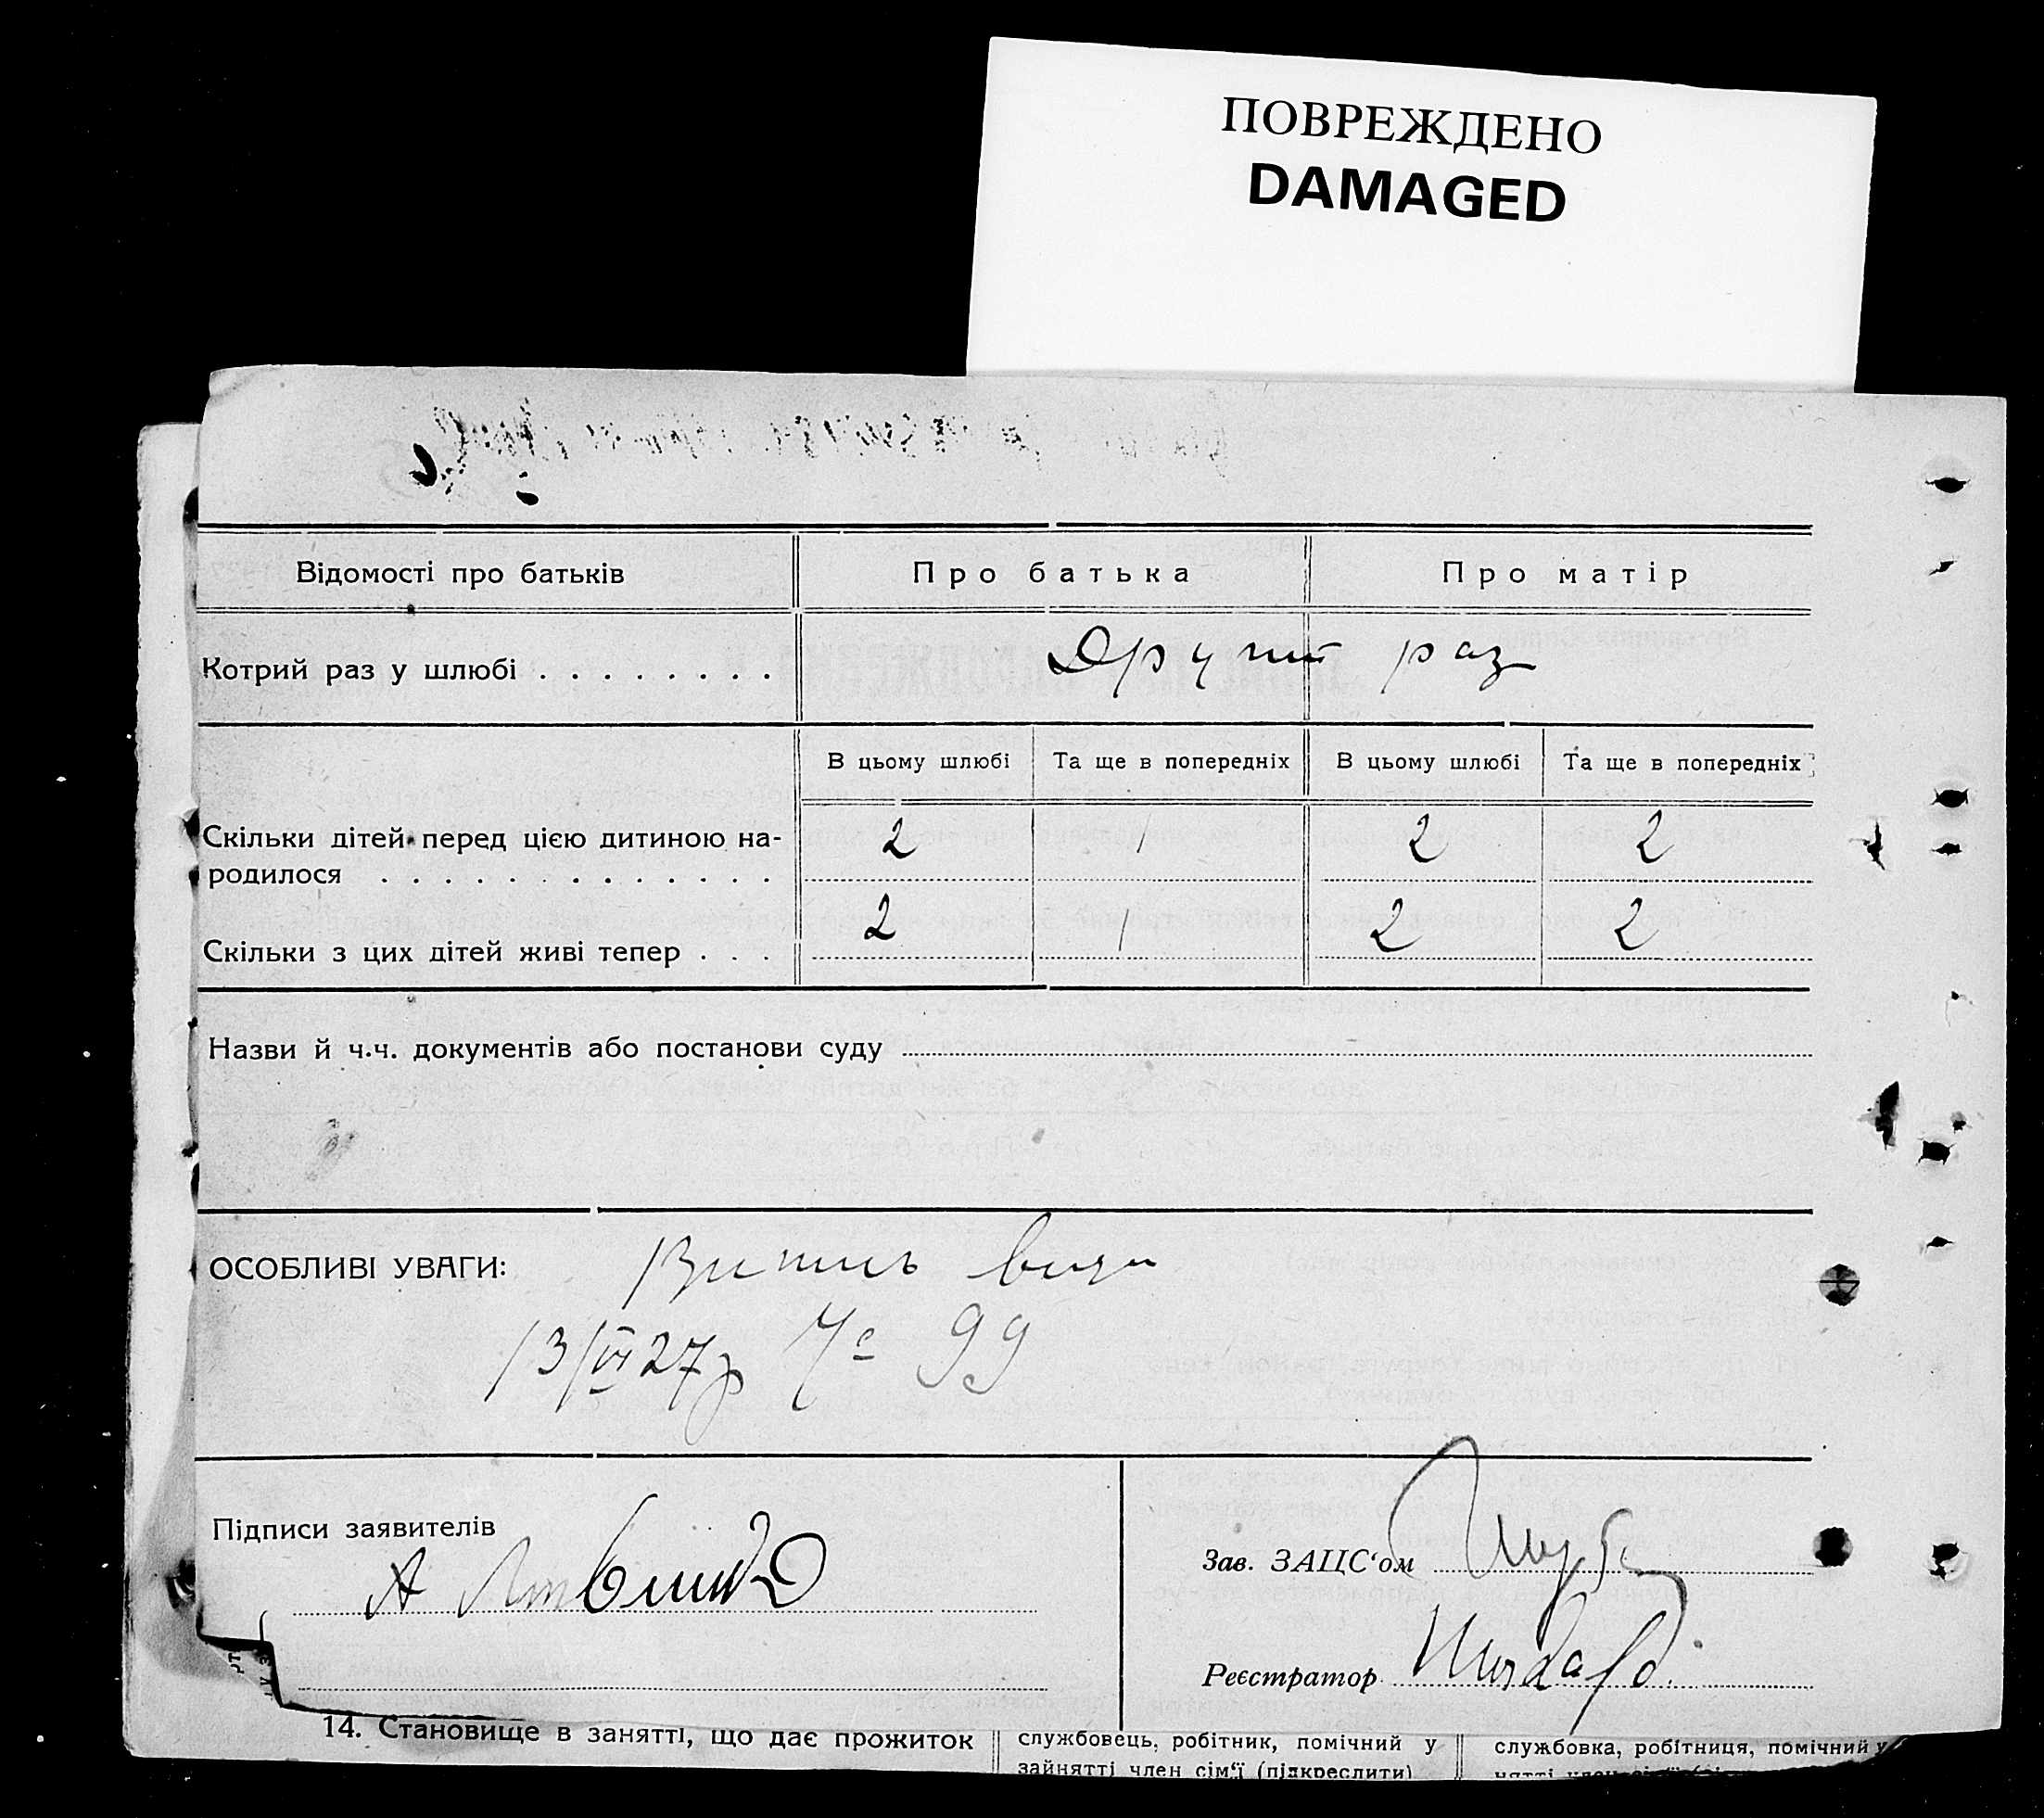 ПОВРЕЖДЕНО
DAMAGED
Відомості про батьків Про батька Про матір
Котрий раз у шлюбі . . . . . . . . Другий раз
В цьому шлюбі Та ще в попередніх В цьому шлюбі Та ще в попередніх
Скільки дітей перед цією дитиною на-
родилося . . . . . . . . . . . . . 2 1 2 2
Скільки з цих дітей живі тепер . . . 2 1 2 2
Назви й ч.ч. документів або постанови суду
ОСОБЛИВІ УВАГИ:
13/VI 27р 99
Підписи заявителів
А
Зав. ЗАЦС‘ом
Реєстратор
14. Становище в занятті, що дає прожиток службовець, робітник, помічний у службовка, робітниця, помічний у
зайнятті член сім‘ї (підкреслити)